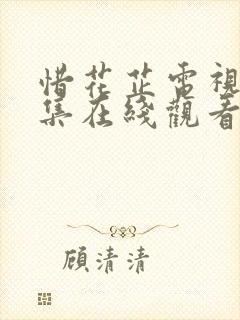 惜花芷電視
集在綫觀看
顧清清